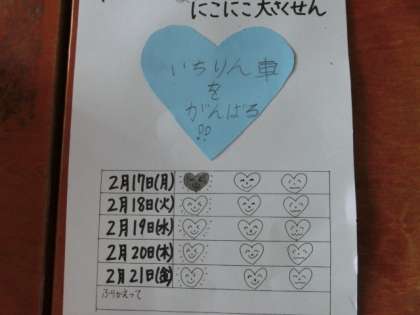 にこにこ大さくせん
いちりん車
を
がんばる
!!
2月17日(月)
2月18日(火)
2月19日(水)
2月20日(木)
2月21日(金)
ふりかえって